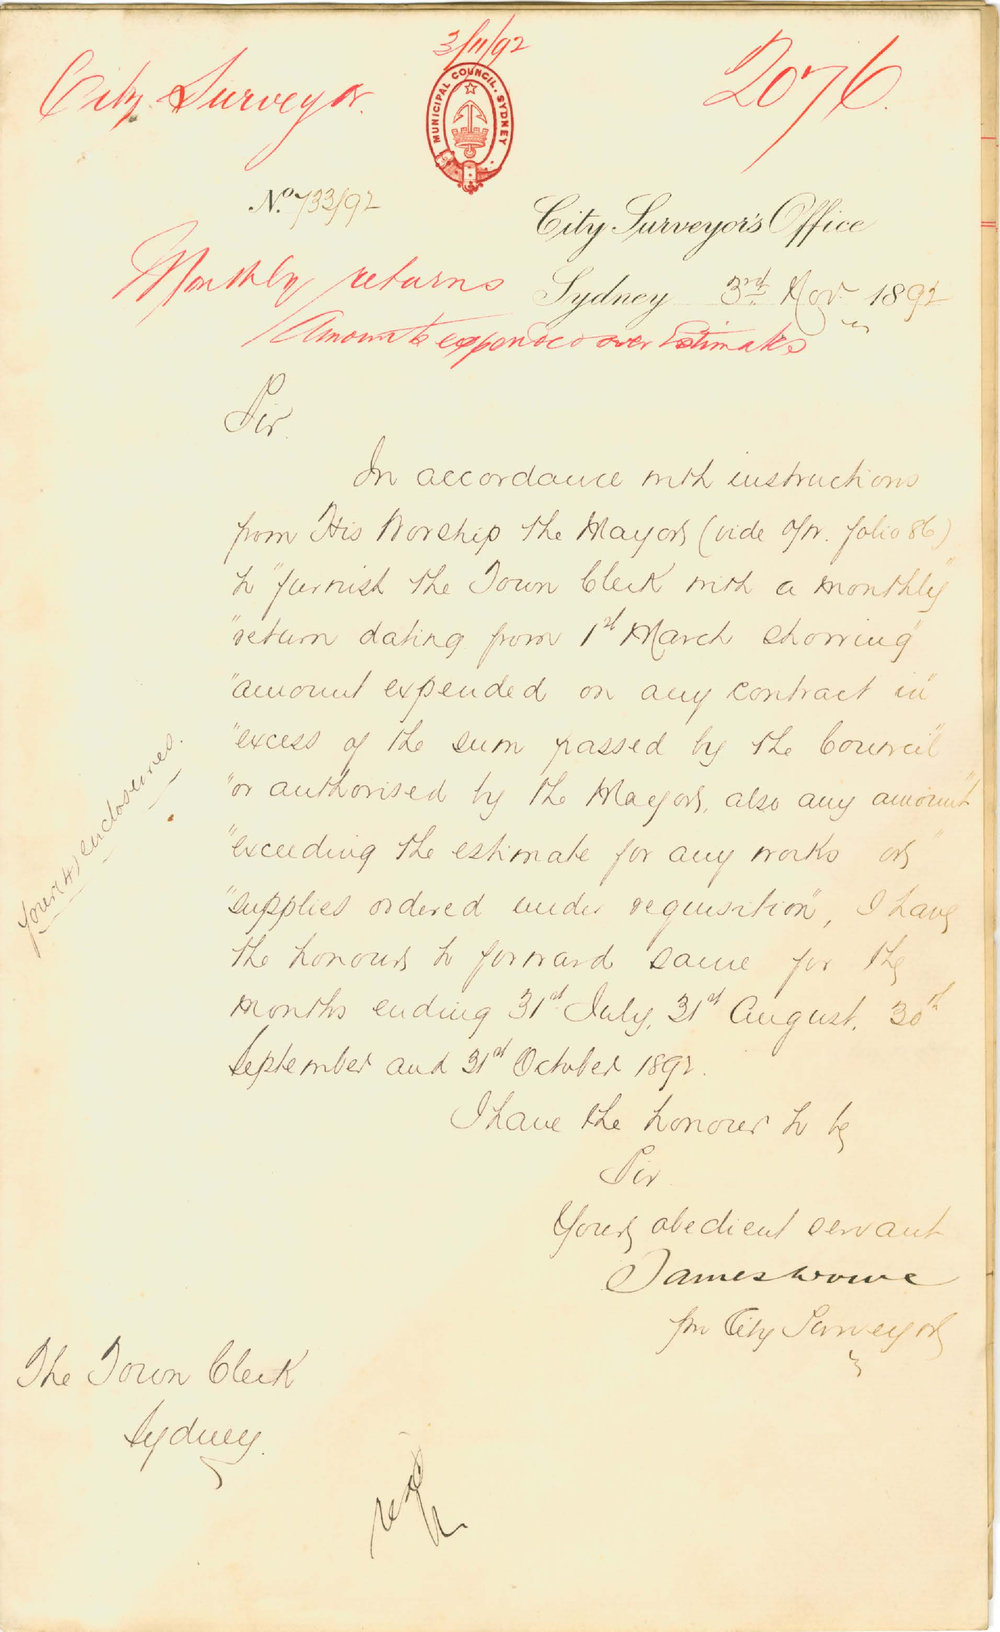 3/11/92
City Surveyor.
2076.
MUNICIPAL COUNCIL. SYDNEY
No. 733/92
City Surveyor's Office
Monthly returns
Sydney 3rd Nov. 1892
Amounts expended over Estimates
Sir.
In accordance with instructions
from His Worship the Mayor (vide folio 86)
to "furnish the Town Clerk with a monthly"
"return dating from 1st March showing"
"amount expended on any contract in"
"excess of the sum passed by the Council"
"or authorised by the Mayor, also any amount"
"exceeding the estimate for any works or"
"supplies ordered under requisition", I have
the honour to forward same for the
months ending 31st July, 31st August, 30th
September and 31st October 1892.
four (4) enclosures.
I have the honour to be
Sir
Your obedient servant
James
for City Surveyor
The Town Clerk
Sydney.